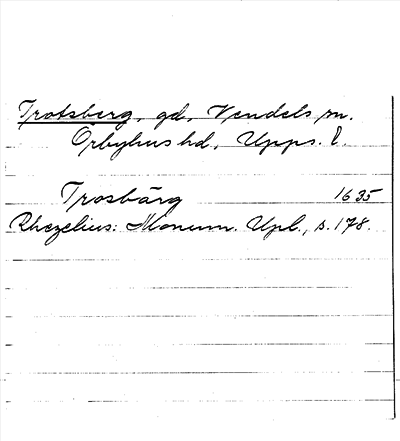 Trotsberg, gd, Vendels sn.
Örbyhus hd, Upps. l.
Trosbärg 1635
Rhezelius: Monum. Upl., s. 178.